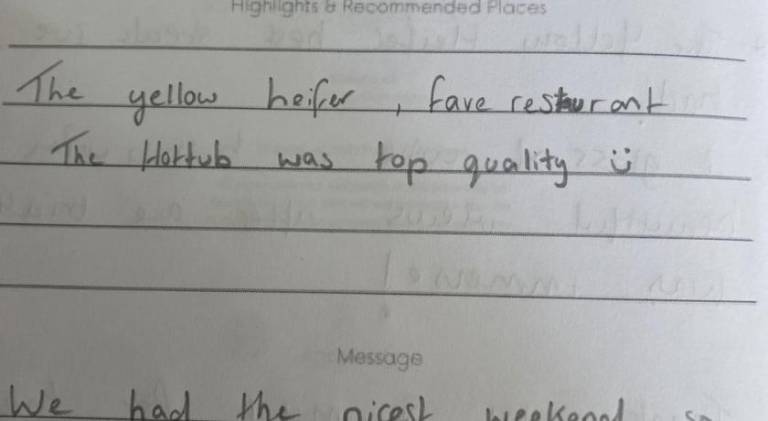 Highlights & Recommended Places
The yellow heifer , fave resturant
The Hottub was top quality ü
Message
We had the nicest weekend so